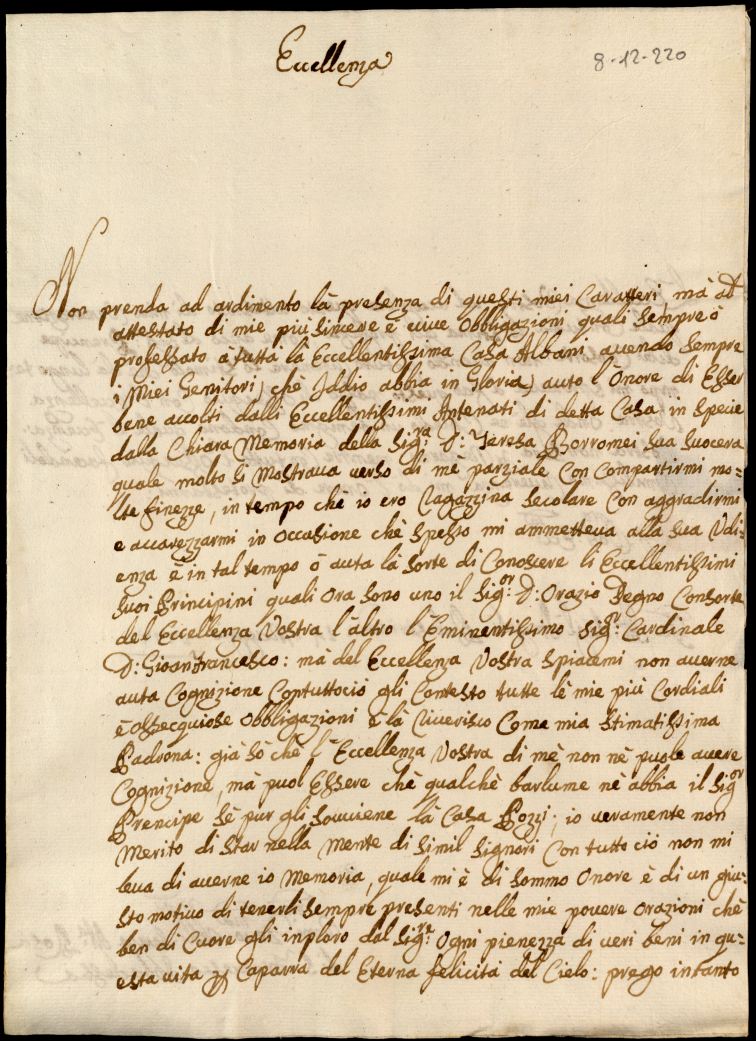 Eccellenza
8-12-220
Non prenda ad ardimento là presenza di questi miei Caratteri, mà ad
attestato di mie più sincere è vive obbligazioni quali sempre ò
professato à tuttà là Eccellentissima Casa Albani avendo sempre
i Miei Genitori, chè Iddio abbia in Gloria) auto l'Onore di Esser
bene accolti dalli Eccellentissimi Antenati di detta Casa in specie
dalla Chiara Memoria della Sig.ra D: Teresa Borromei sua suocera
quale molto si Mostrava verso di mè parziale con compartirmi mo=
lte finezze, in tempo chè io ero Ragazzina secolare con aggradirmi
e accarezzarmi in occasione chè spesso mi ammetteva alla sua Udi=
enza è in tal tempo ò auta là sorte di Conoscere li Eccellentissimi
suoi Principini quali ora sono uno il Sig.or D: Orazio Degno Consorte
del Eccellenza Vostra l'altro l'Eminentissimo Sig.r Cardinale
D: Gioanfrancesco: mà del Eccellenza Vostra spiacemi non averne
auta Cognizione Contuttociò gli Contesto tutte lè mie più Cordiali
è ossecquiose obbligazioni è là riverisco Come mia stimatissima
Padrona: già sò chè l'Eccellenza Vostra di mè non nè puole avere
Cognizione, mà puol Essere chè qualchè barlume nè abbia il Sig.or
Prencipe sè pur gli sovviene là Casa Pozzi; io veramente non
Merito di star nella mente di simil Signori Con tutto ciò non mi
leva di averne io Memoria, quale mi è di sommo Onore è di un giu=
sto motivo di tenerli sempre presenti nelle mie povere orazioni chè
ben di Cuore gli inploro dal Sig.re Ogni pienezza di veri beni in qu=
esta vita Caparra del Eterna felicità del Cielo: prego intanto